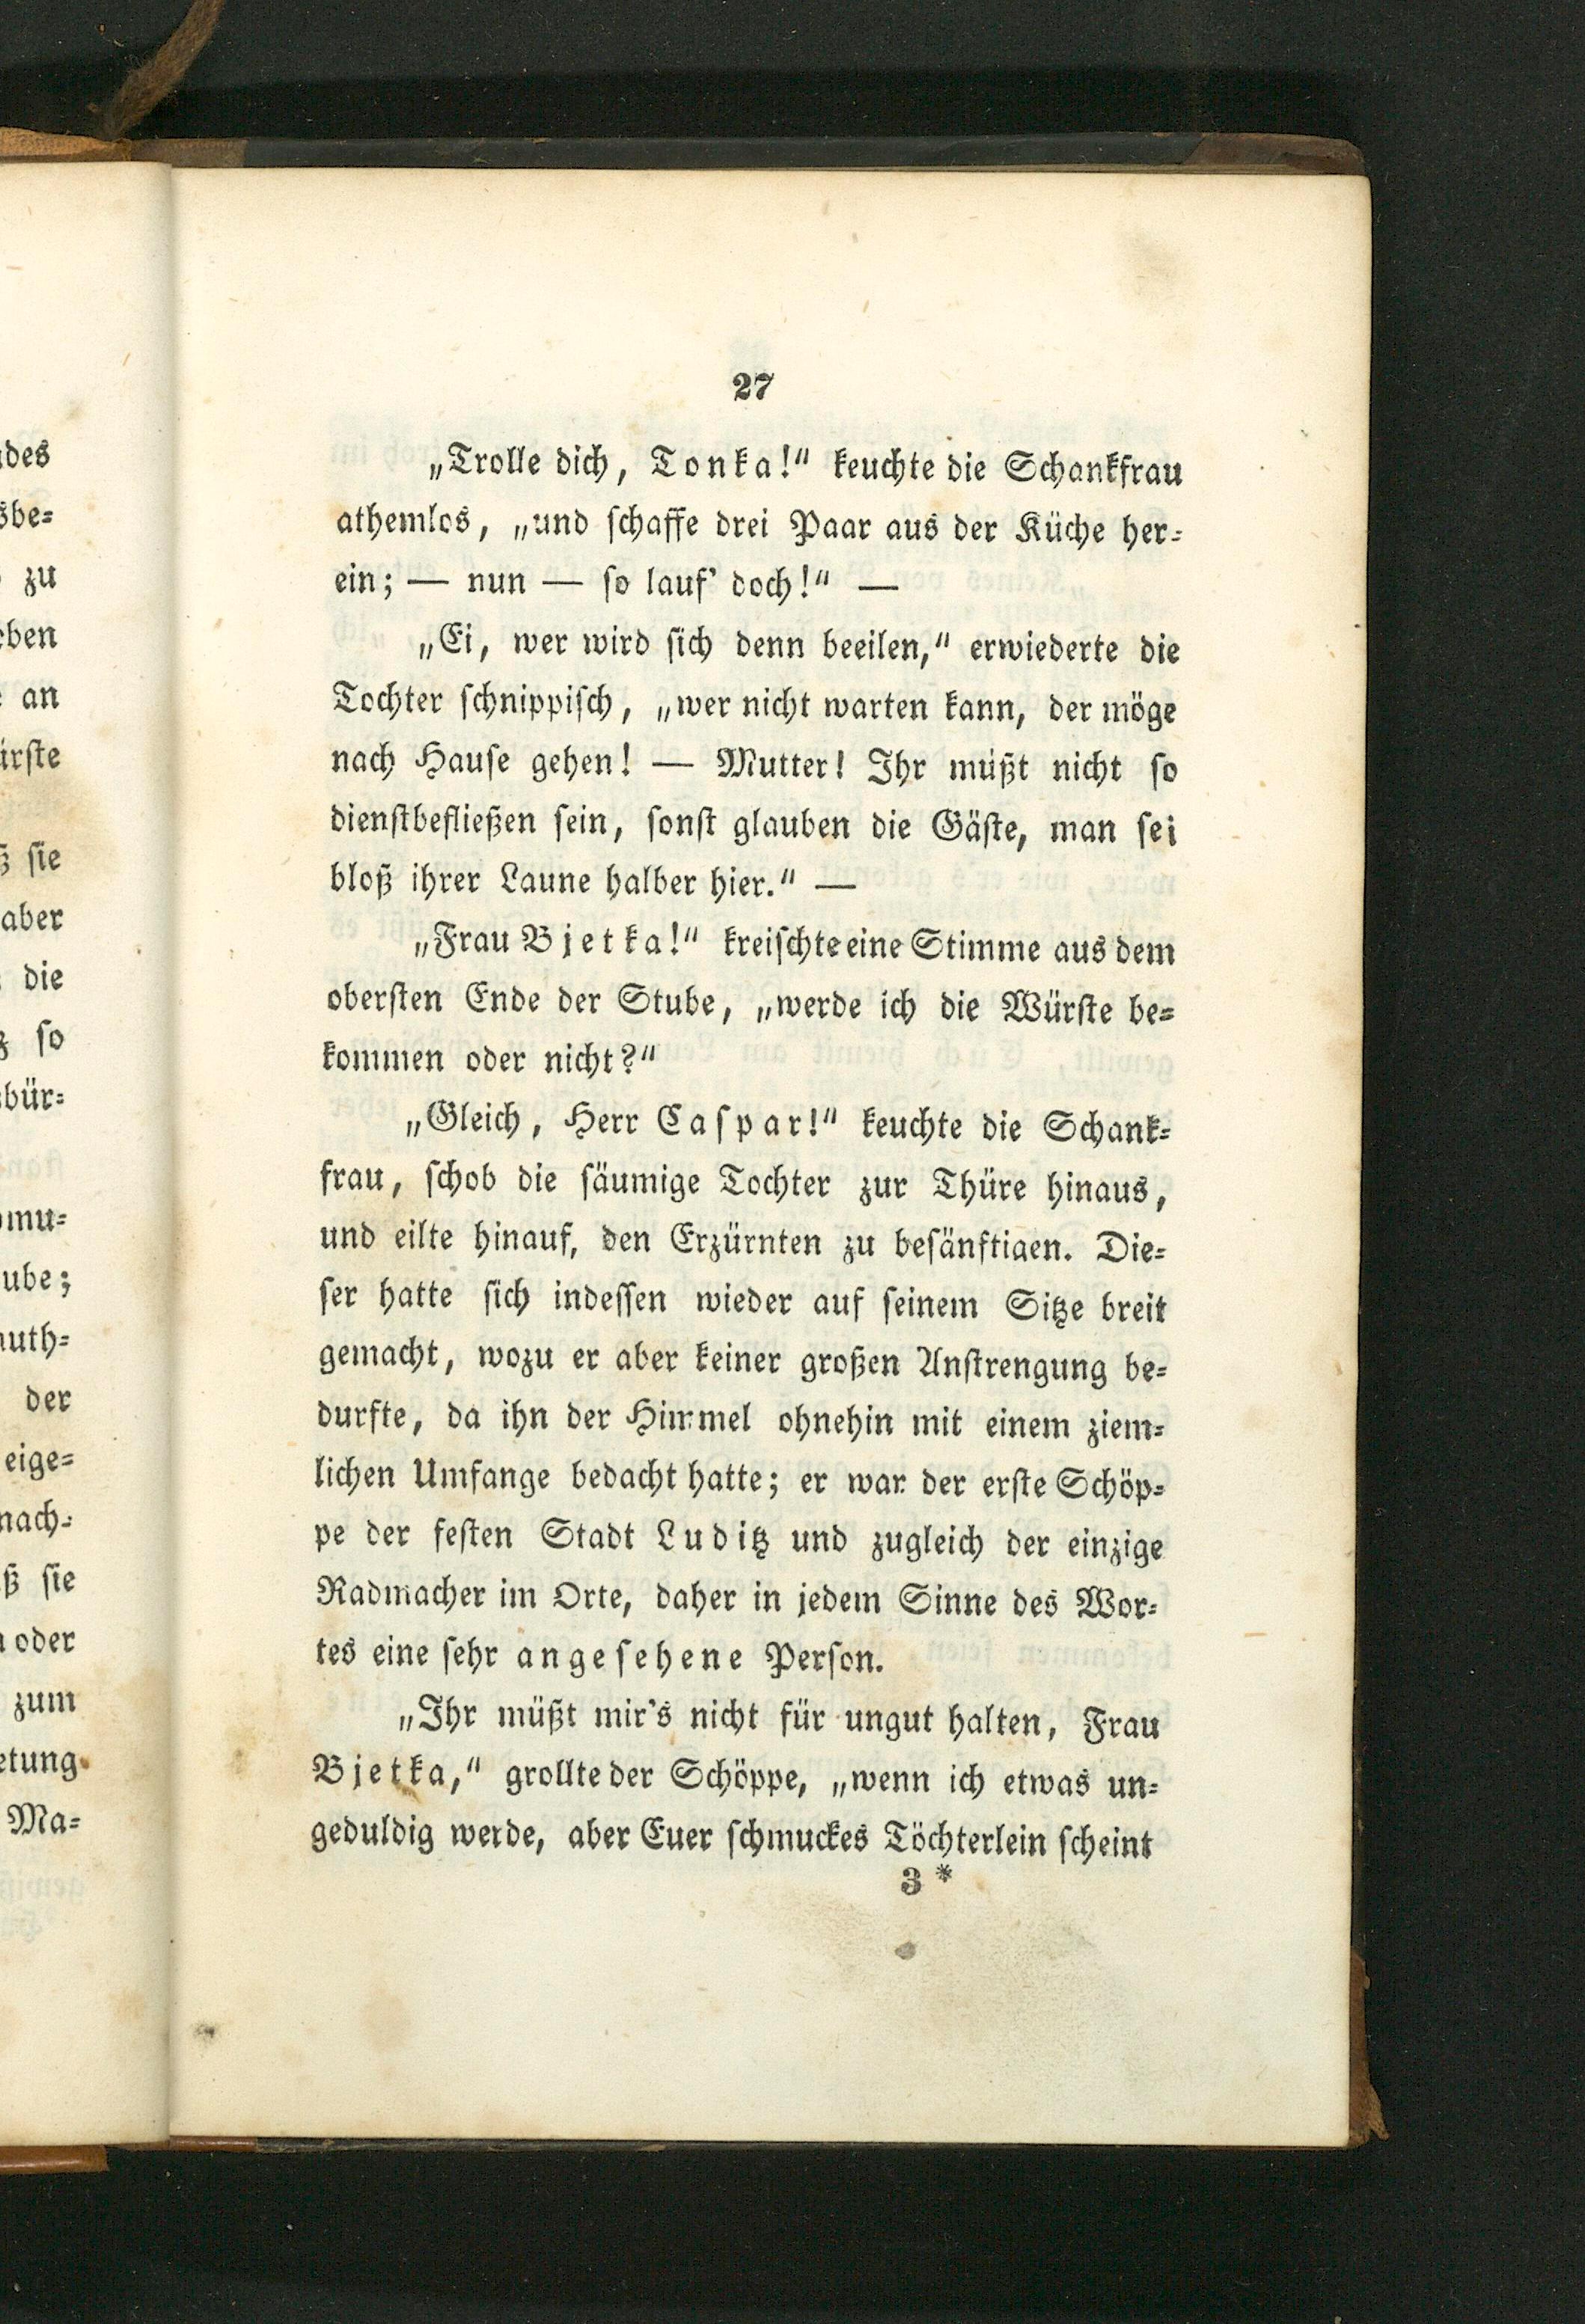 des
sbe=
zu
eben
an
ürste
sie
aber
die
so
bür=
mu=
ube;
uth=
der
eige=
nach=
ß sie
oder
zum
etung
Ma=
27
„Trolle dich, Tonka!“ keuchte die Schankfrau
athemlos, „und schaffe drei Paar aus der Küche her=
ein; — nun — so lauf’ doch!“ —
„Ei, wer wird sich denn beeilen,“ erwiederte die
Tochter schnippisch, „wer nicht warten kann, der möge
nach Hause gehen! — Mutter! Ihr müßt nicht so
dienstbefließen sein, sonst glauben die Gäste, man sei
bloß ihrer Laune halber hier.“ —
„Frau Bjetka!“ kreischte eine Stimme aus dem
obersten Ende der Stube, „werde ich die Würste be=
kommen oder nicht?“
„Gleich, Herr Caspar!“ keuchte die Schank=
frau, schob die säumige Tochter zur Thüre hinaus,
und eilte hinauf, den Erzürnten zu besänftigen. Die=
ser hatte sich indessen wieder auf seinem Sitze breit
gemacht, wozu er aber keiner großen Anstrengung be=
durfte, da ihn der Himmel ohnehin mit einem ziem=
lichen Umfange bedacht hatte; er war der erste Schöp=
pe der festen Stadt Luditz und zugleich der einzige
Radmacher im Orte, daher in jedem Sinne des Wor=
tes eine sehr angesehene Person.
„Ihr müßt mir’s nicht für ungut halten, Frau
Bjetka,“ grollte der Schöppe, „wenn ich etwas un=
geduldig werde, aber Euer schmuckes Töchterlein scheint
3 *